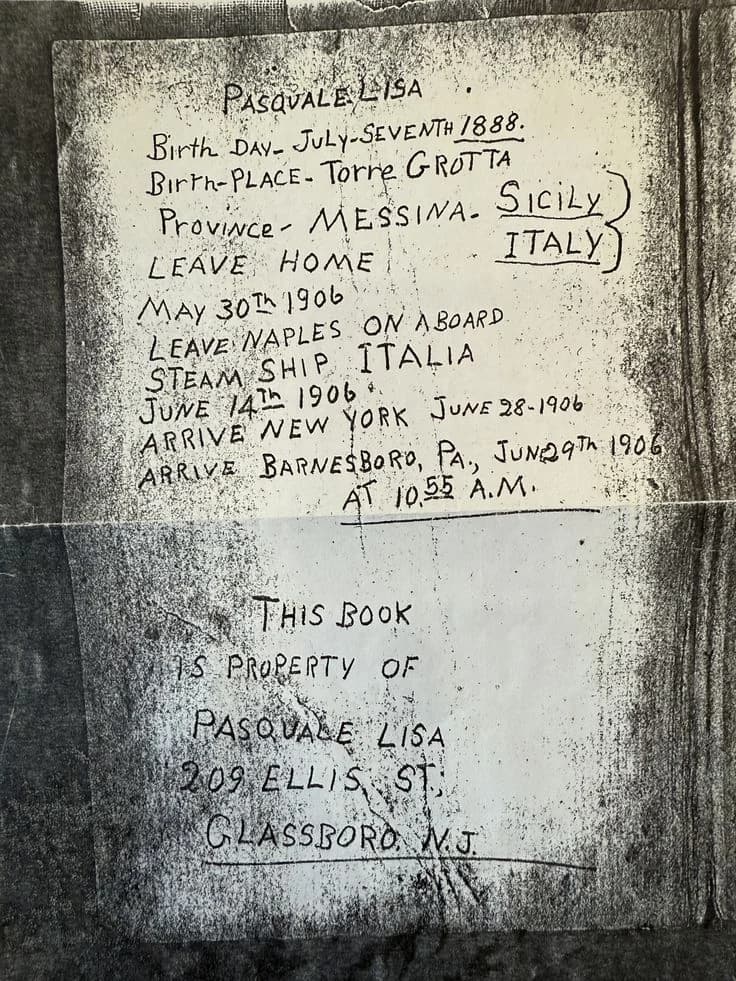 PASQUALE LISA.
Birth DAY- JULY-SEVENTH 1888.
BIRTH-PLACE- Torre GROTTA
PROVINCE- MESSINA- SICILY
ITALY
LEAVE HOME
MAY 30TH 1906
LEAVE NAPLES ON ABOARD
STEAM SHIP ITALIA
JUNE 14TH 1906.
ARRIVE NEW YORK JUNE 28-1906
ARRIVE BARNESBORO, PA., JUNE 29TH 1906
AT 10.55 A.M.
THIS BOOK
IS PROPERTY OF
PASQUALE LISA
209 ELLIS, ST;
GLASSBORO. N.J.